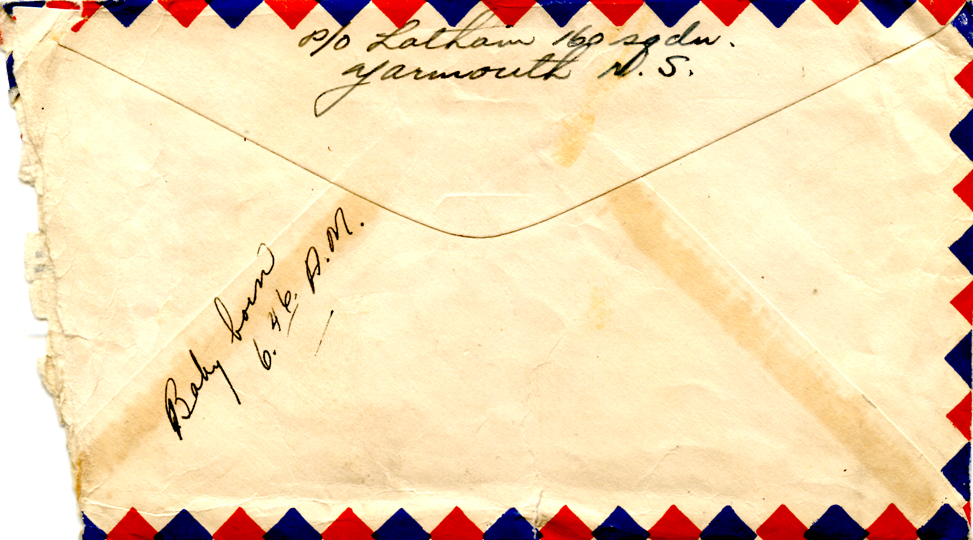 P/O Latham 160 sqdn.
Yarmouth N.S.
Baby born
6.46. P.M.